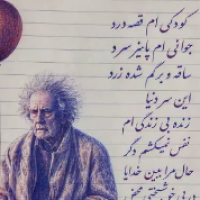 کودکی ام قصه درد
جوانی ام پاییز سرد
ساقه و برگم شده زرد
این سر دنیا
زنده بی زندگی ام
نفس نمیکشم دگر
حال مرا ببین خدایا
در پی خوشبختی محض